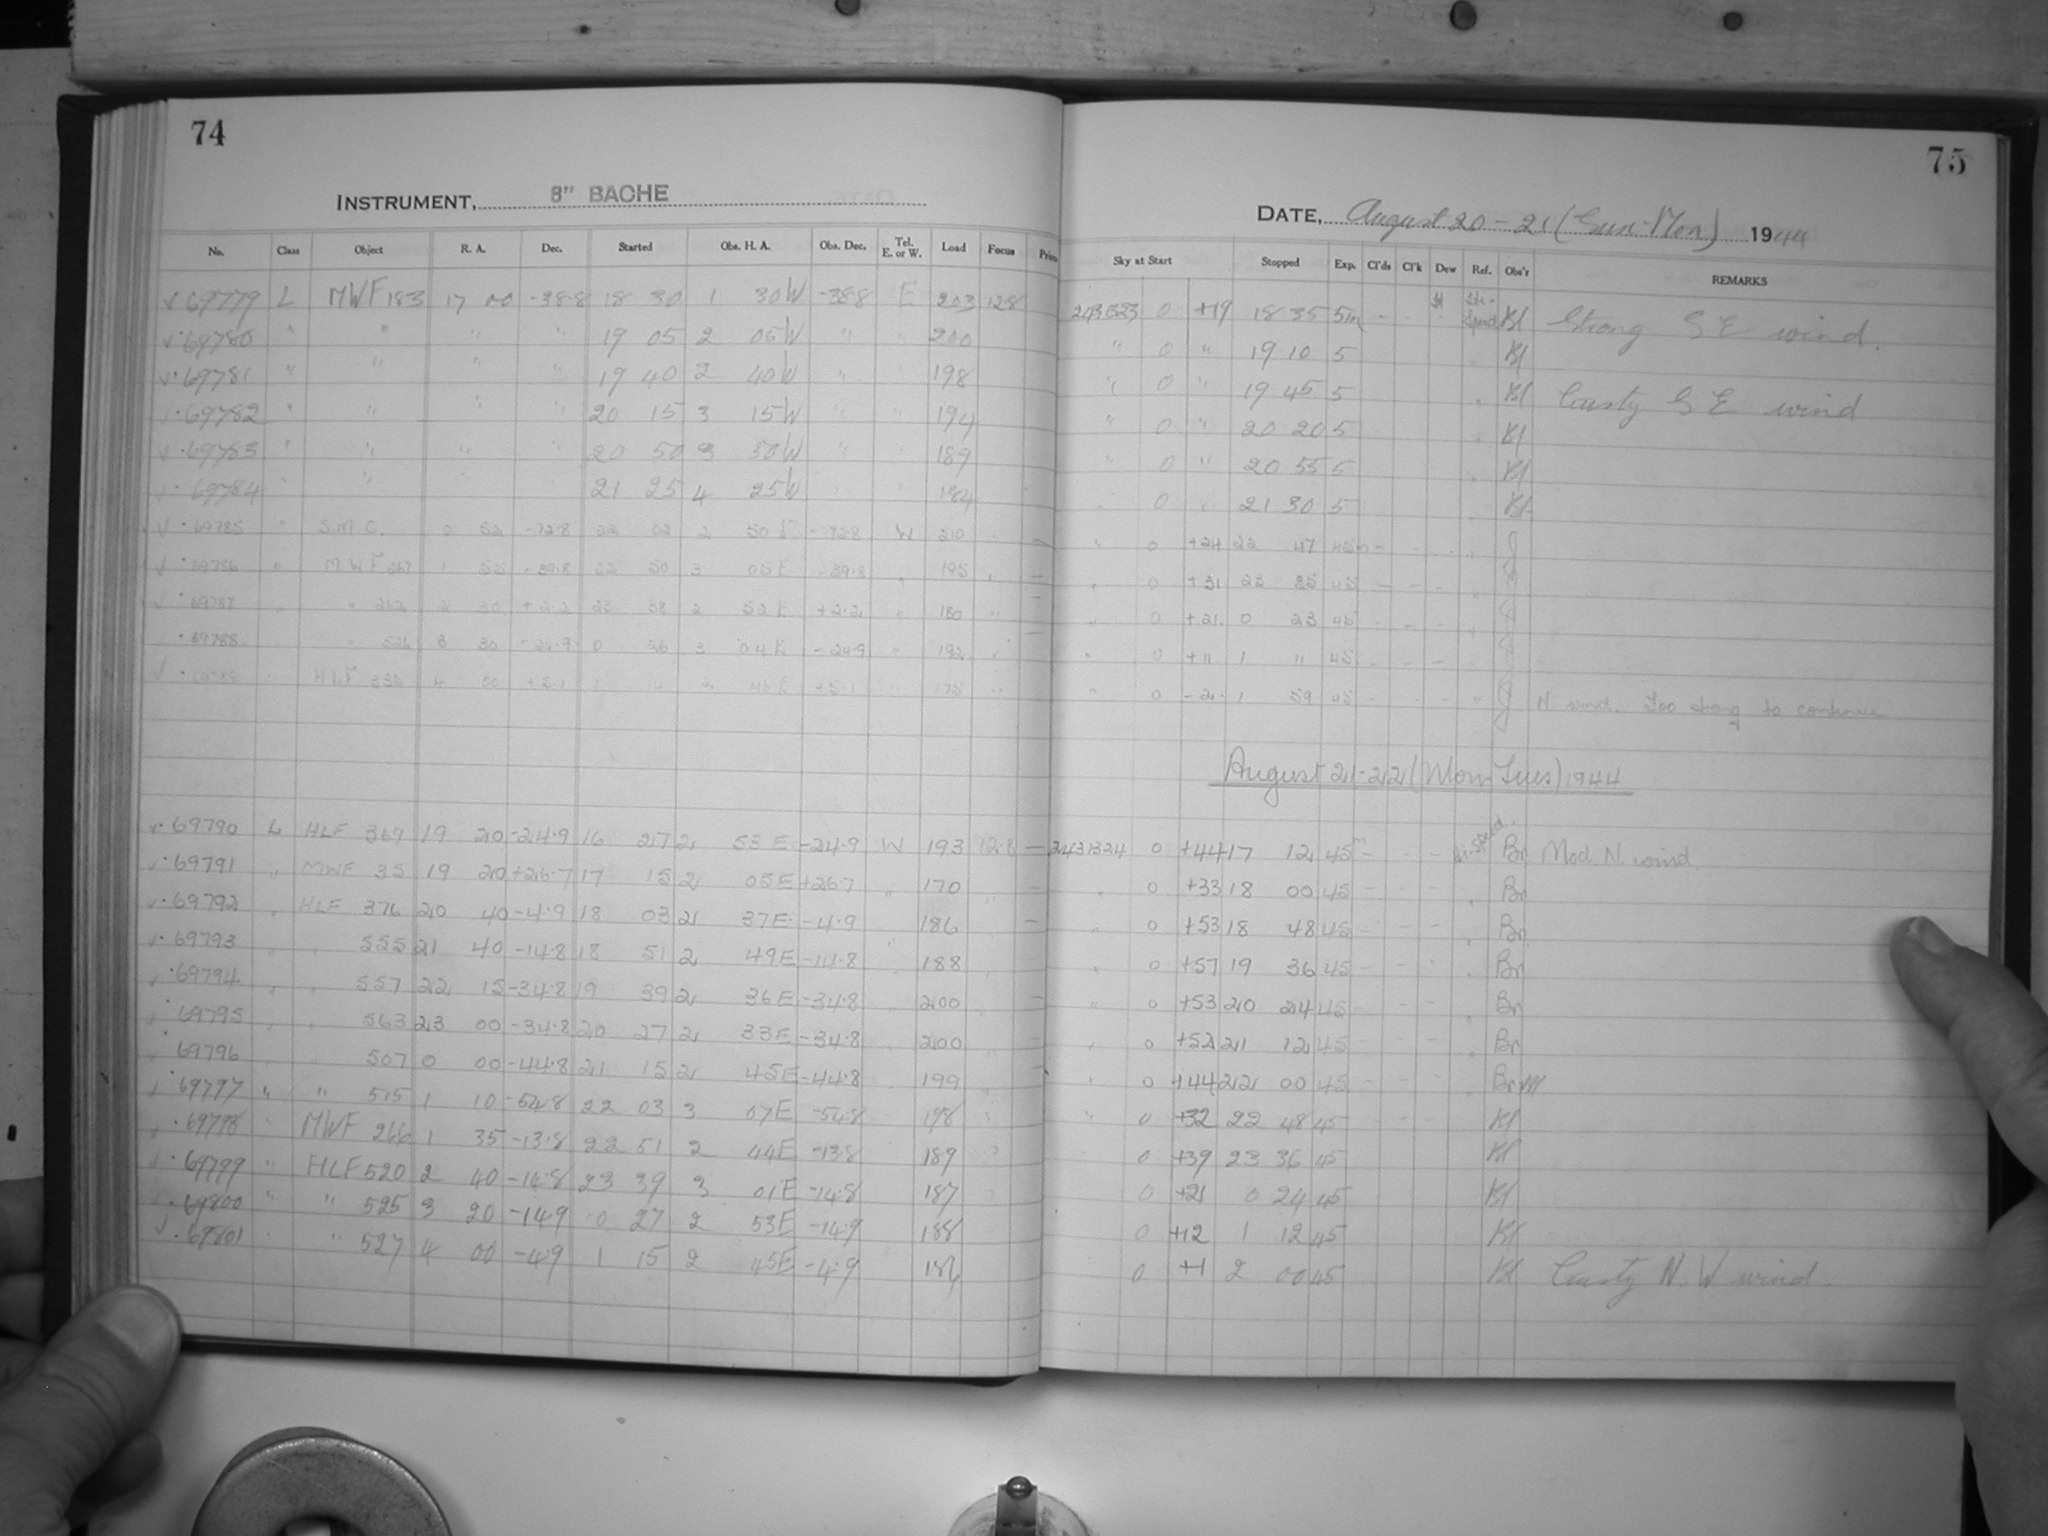 74
INSTRUMENT, 8" BACHE
No. Class Object R. A. Dec. Started Obs. H. A. Obs. Dec. Tel. E. or W. Load Focus
69779 L MWF 183 17 00 -38.8 18 30 1 30W -38.8 E 203 12.8
69780 " " " " 19 05 2 05W " " 200
69781 " " " " 19 40 2 40W " 198
69782 " " " " 20 15 3 15W " " 194
69783 " " " " 20 50 3 50W " 189
69784 " " 21 25 4 25W 184
69785 " S.M.C. 0 52 -72.8 22 02 2 50E -72.8 W 210
69786 " MWF 267 1 55 -39.8 22 50 3 05E -39.8 " 195
69787 " 262 2 30 +2.2 23 38 2 52E +2.2 " 180
69788 " 526 3 30 -24.9 0 26 3 04E -24.9 " 192
HLF 4 00 +5.1 1 14 2 46E +5.1 " 175
69790 L HLF 369 19 20 -24.9 16 27 2 53E -24.9 W 193 12.8 -
69791 " MWF 35 19 20 +26.7 17 15 2 05E +26.7 " 170 -
69792 " HLF 376 20 40 -4.9 18 03 2 37E -4.9 186 -
69793 " " 555 21 40 -14.8 18 51 2 49E -14.8 " 188
69794 " " 557 22 15 -34.8 19 39 2 36E -34.8 " 200 -
69795 " " 563 23 00 -34.8 20 27 2 33E -34.8 200 -
69796 " 507 0 00 -44.8 21 15 2 45E -44.8 199
69797 " " 515 1 10 -54.8 22 03 3 07E -54.8 198
69798 " MWF 266 1 35 -13.8 22 51 2 44E -13.8 189
69799 " HLF 520 2 40 -14.8 23 39 3 01E -14.8 187
69800 " " 525 3 20 -14.9 0 27 2 53E -14.9 188
69801 " 527 4 00 -4.9 1 15 2 45E -4.9 186
75
DATE, August 20-21 (Sun-Mon) 1944
Sky at Start Stopped Exp. Cl'ds Cl'k Dew Ref. Obs'r REMARKS
2431323 0 +19 18 35 5m - - Bl Strong S E wind.
" 0 " 19 10 5 Bl
" 0 " 19 45 5 Bl Gusty S E wind
" 0 " 20 20 5 Bl
" 0 " 20 55 5 Bl
0 21 30 5 Bl
" 0 +24 22 47 45m - - -
" 0 +31 23 35 45 - - -
" 0 +21 0 23 45 - - -
" 0 +11 1 11 45 - - -
" 0 -2 1 59 45 - - - N. wind. Too strong to continue
August 21-22 (Mon-Tues) 1944
2431324 0 +44 17 12 45m - - - Hi-Speed Br Mod. N. wind.
" 0 +33 18 00 45 - - - " Br
" 0 +53 18 48 45 - - - " Br
" 0 +57 19 36 45 - - - " Br
" 0 +53 20 24 45 - - - " Br
" 0 +52 21 12 45 - - - " Br
" 0 +44 22 00 45 - - - " Br
" 0 +32 22 48 45 - - - Bl
0 +39 23 36 45 Bl
0 +21 0 24 45 Bl
0 +12 1 12 45 Bl
0 +1 2 00 45 Bl Gusty N. W wind.